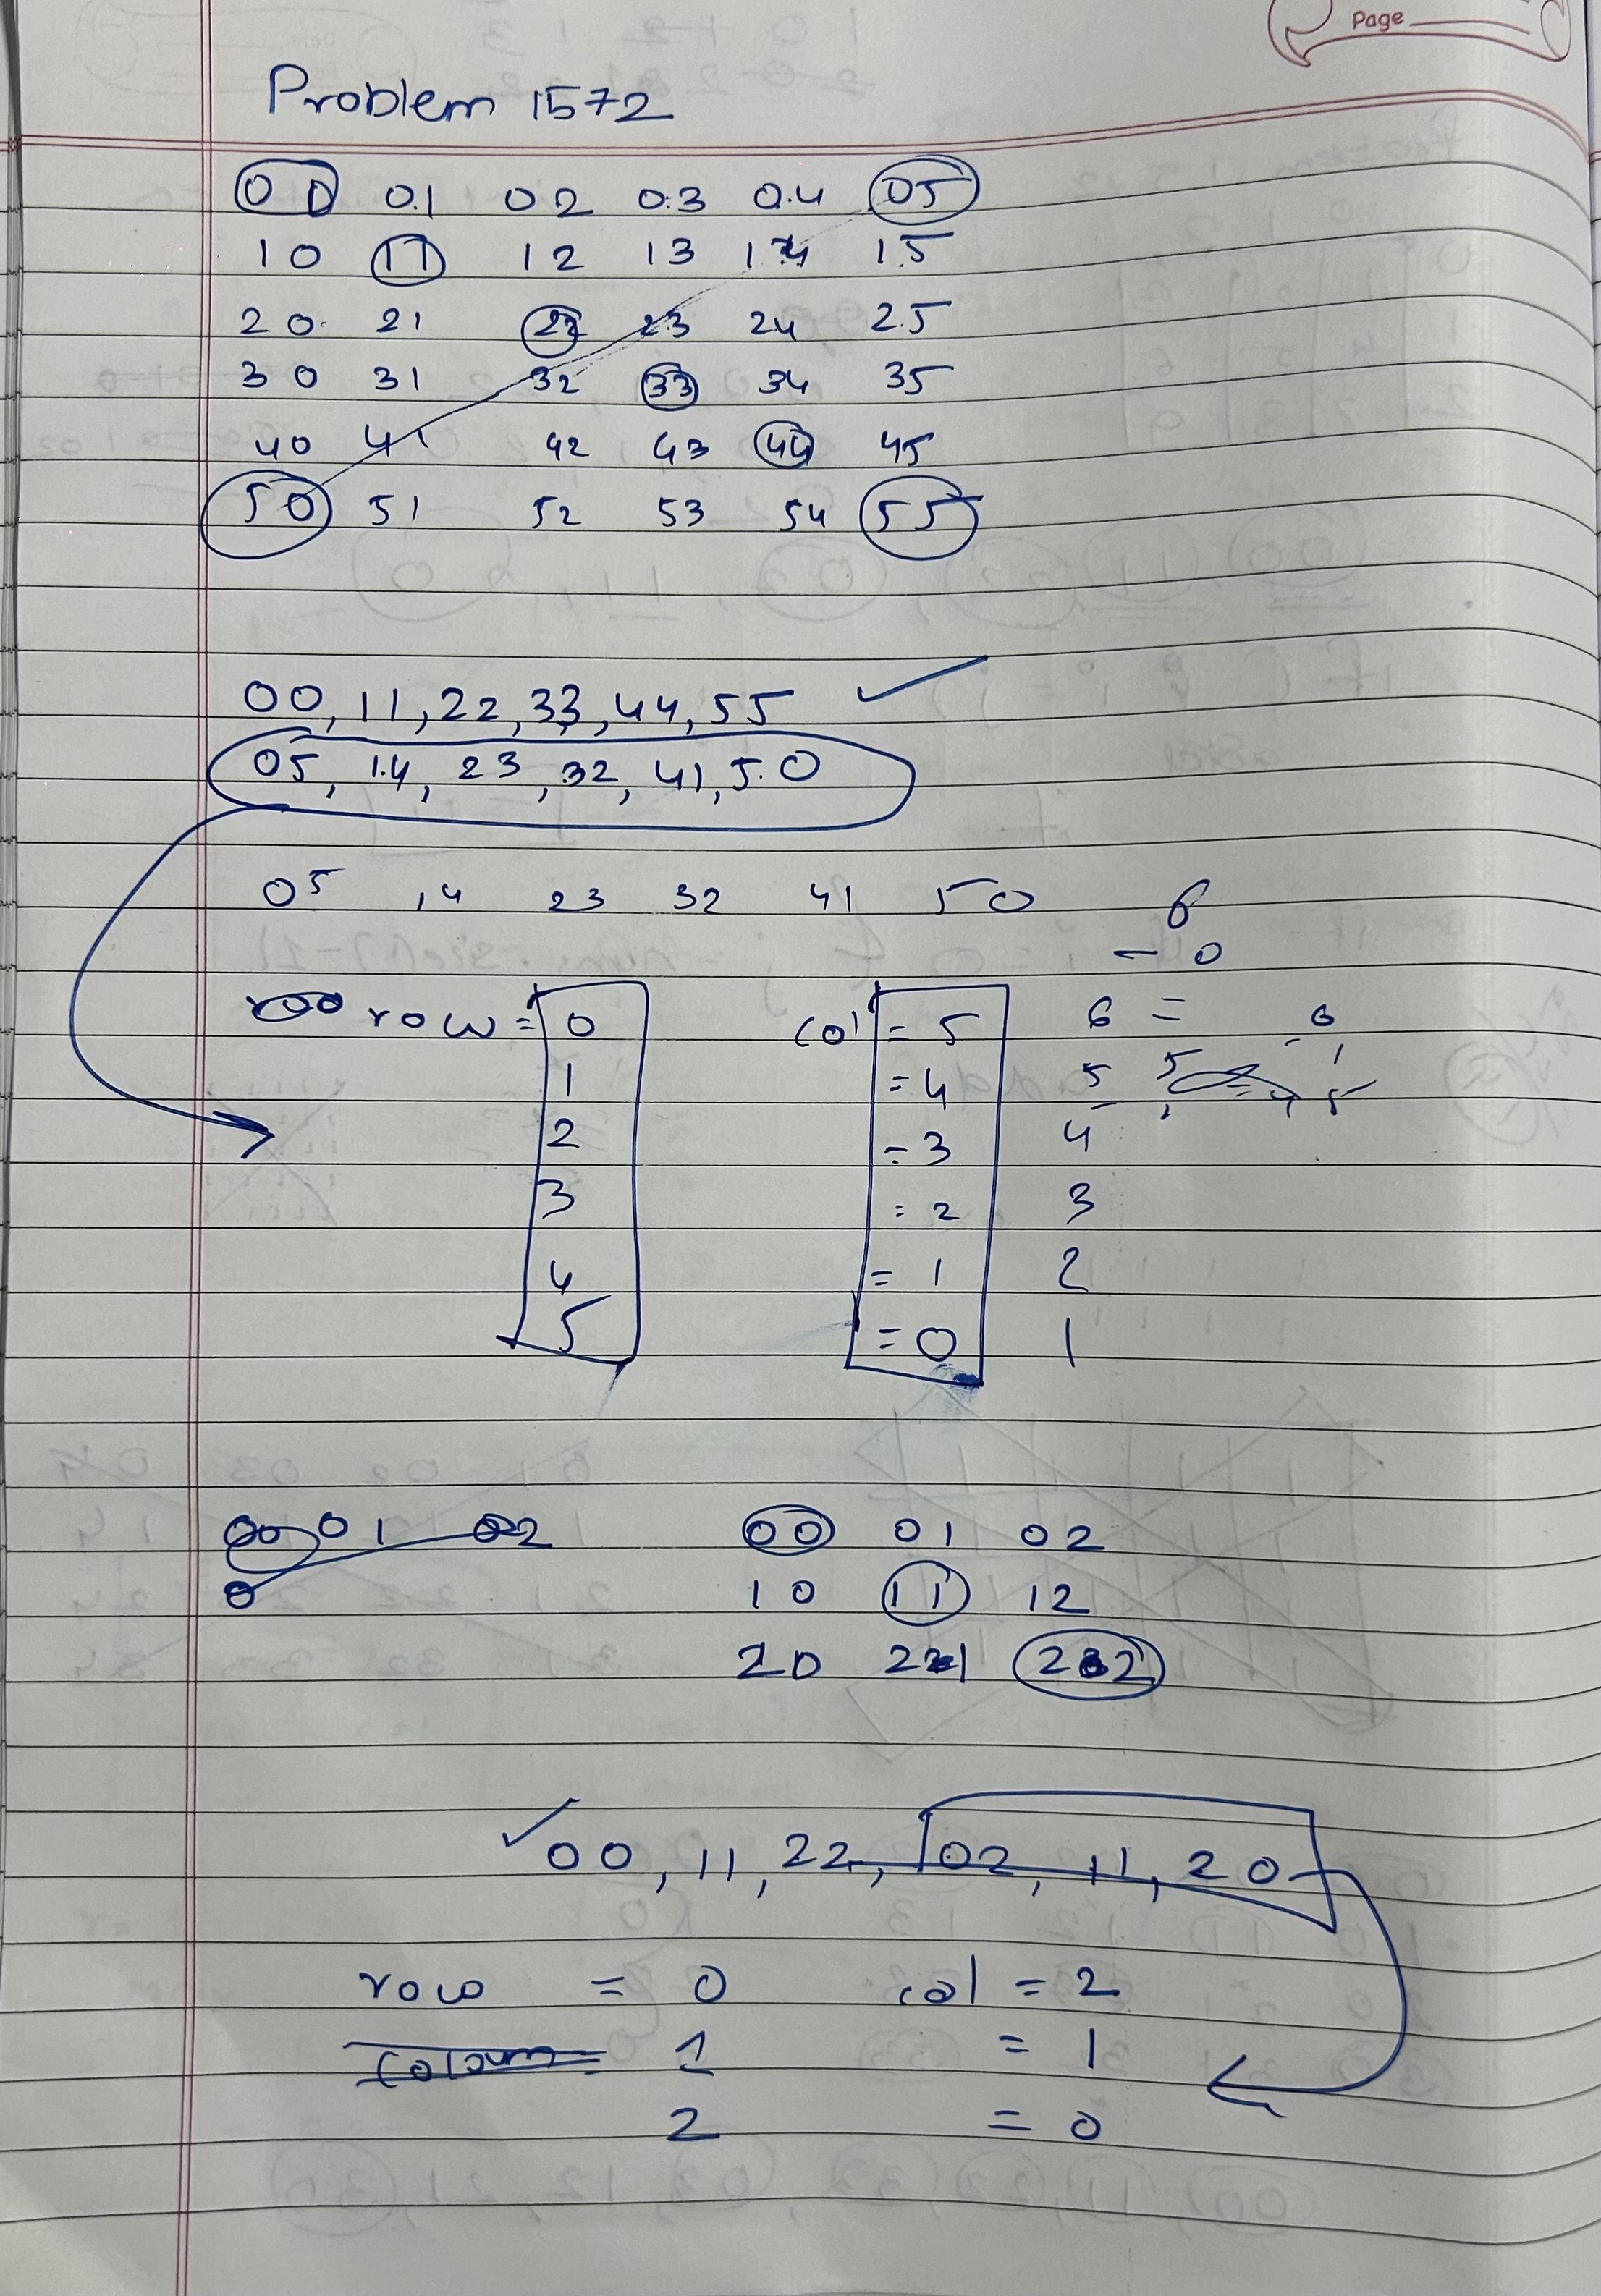 Page
Problem 1572
00 0.1 02 0.3 0.4 05
10 11 12 13 14 1.5
20 21 22 23 24 2.5
30 31 32 33 34 35
40 41 42 43 44 45
50 51 52 53 54 55
00, 11, 22, 33, 44, 55 ✓
05, 1.4, 23, 32, 41, 5.0
05 14 23 32 41 50 6
- 0
row = 0 col = 5 6 =
1 = 4 5
2 = 3 4
3 = 2 3
4 = 1 2
5 = 0 1
00 01 02 00 01 02
0 10 11 12
20 21 22
✓ 00, 11, 22, 02, 11, 20
row = 0 col = 2
Column = 1 = 1
2 = 0